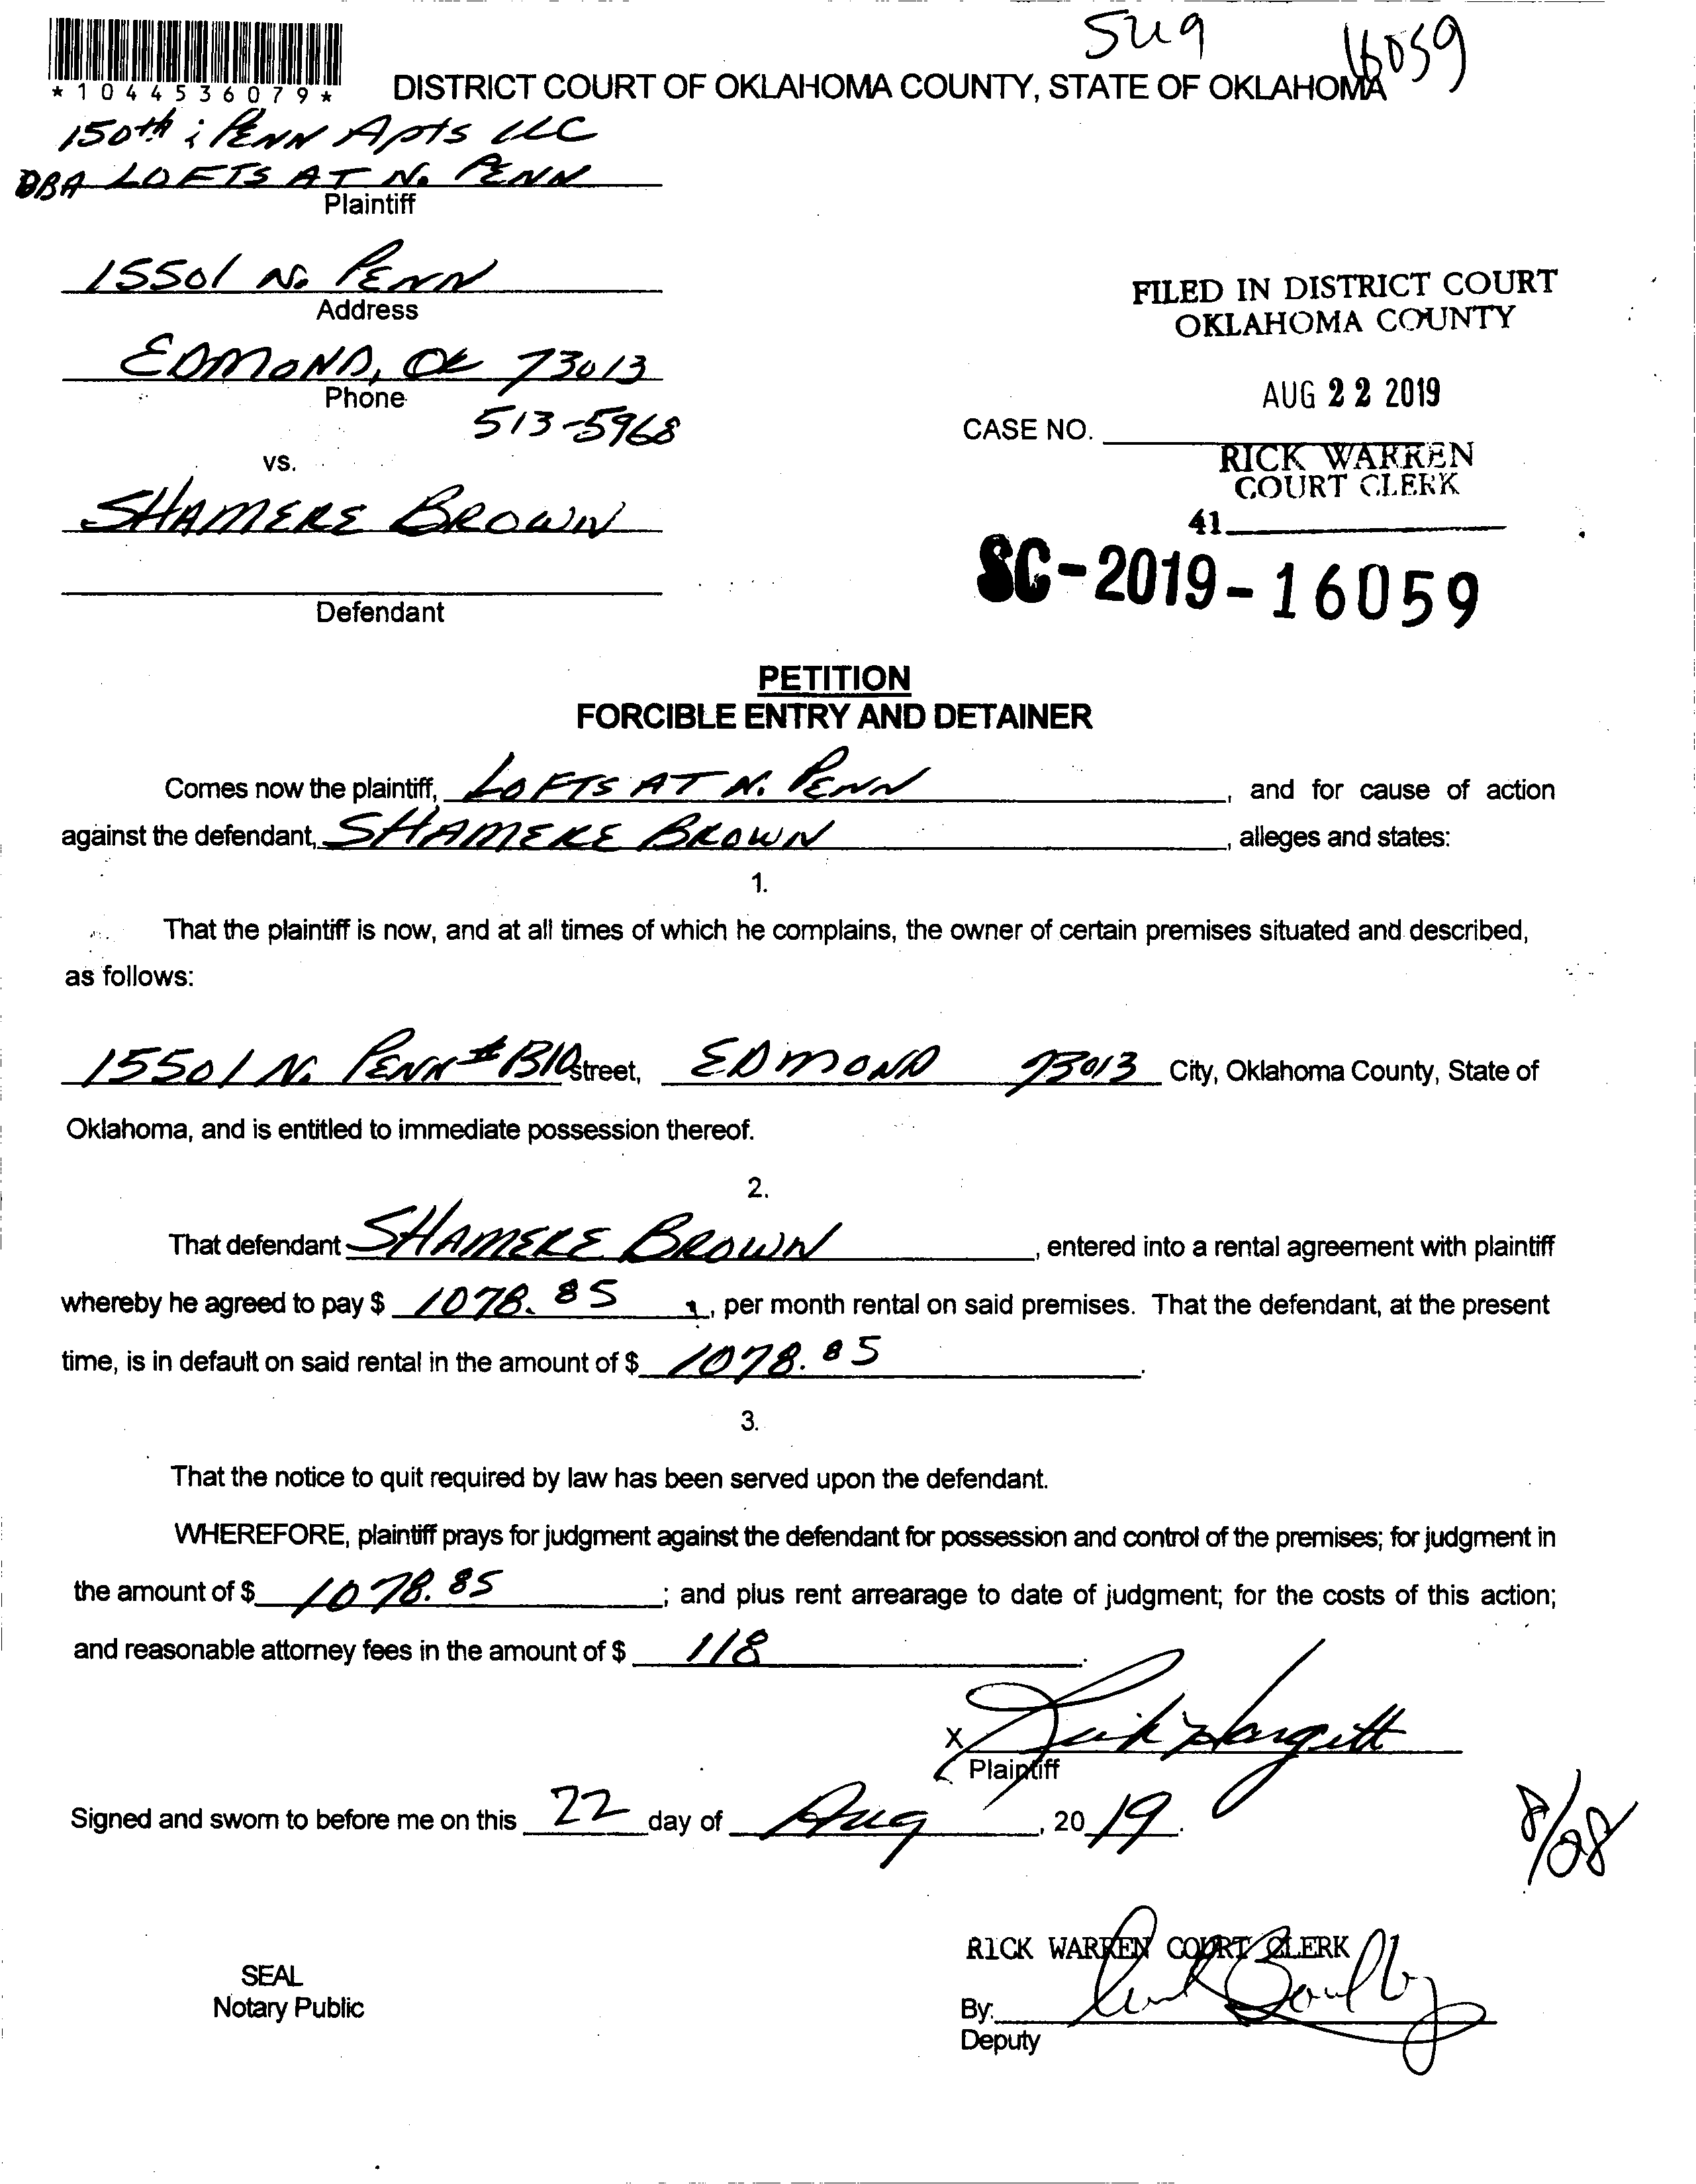 SU9
16059
*1044536079*
DISTRICT COURT OF OKLAHOMA COUNTY, STATE OF OKLAHOMA
150th & PENN Apts LLC
DBA LOFTS AT N. PENN
Plaintiff
15501 N. PENN
Address
FILED IN DISTRICT COURT
OKLAHOMA COUNTY
EDMOND, OK 73013
Phone
513-5968
AUG 22 2019
CASE NO.
RICK WARREN
COURT CLERK
vs.
SHAMERE BROWN
41
SC-2019-16059
Defendant
PETITION
FORCIBLE ENTRY AND DETAINER
Comes now the plaintiff, LOFTS AT N. PENN, and for cause of action
against the defendant, SHAMERE BROWN, alleges and states:
1.
That the plaintiff is now, and at all times of which he complains, the owner of certain premises situated and described,
as follows:
15501 N. PENN # B10 street, EDMOND 73013 City, Oklahoma County, State of
Oklahoma, and is entitled to immediate possession thereof.
2.
That defendant SHAMERE BROWN, entered into a rental agreement with plaintiff
whereby he agreed to pay $ 1078.85, per month rental on said premises. That the defendant, at the present
time, is in default on said rental in the amount of $ 1078.85.
3.
That the notice to quit required by law has been served upon the defendant.
WHEREFORE, plaintiff prays for judgment against the defendant for possession and control of the premises; for judgment in
the amount of $ 1078.85; and plus rent arrearage to date of judgment; for the costs of this action;
and reasonable attorney fees in the amount of $ 118.
X
Plaintiff
Signed and sworn to before me on this 22 day of Aug, 2019.
8/28
RICK WARREN COURT CLERK
SEAL
Notary Public
By:
Deputy